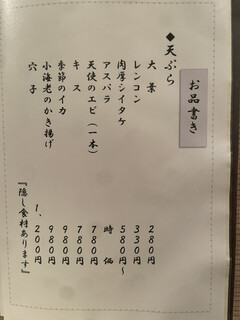 お品書き
◆天ぷら
大葉 280円
レンコン 330円
肉厚シイタケ 580円～
アスパラ 時価
天使のエビ（一本） 780円
キス 780円
季節のイカ 980円
小海老のかき揚げ 980円
穴子 1、200円
『隠し食材あります』